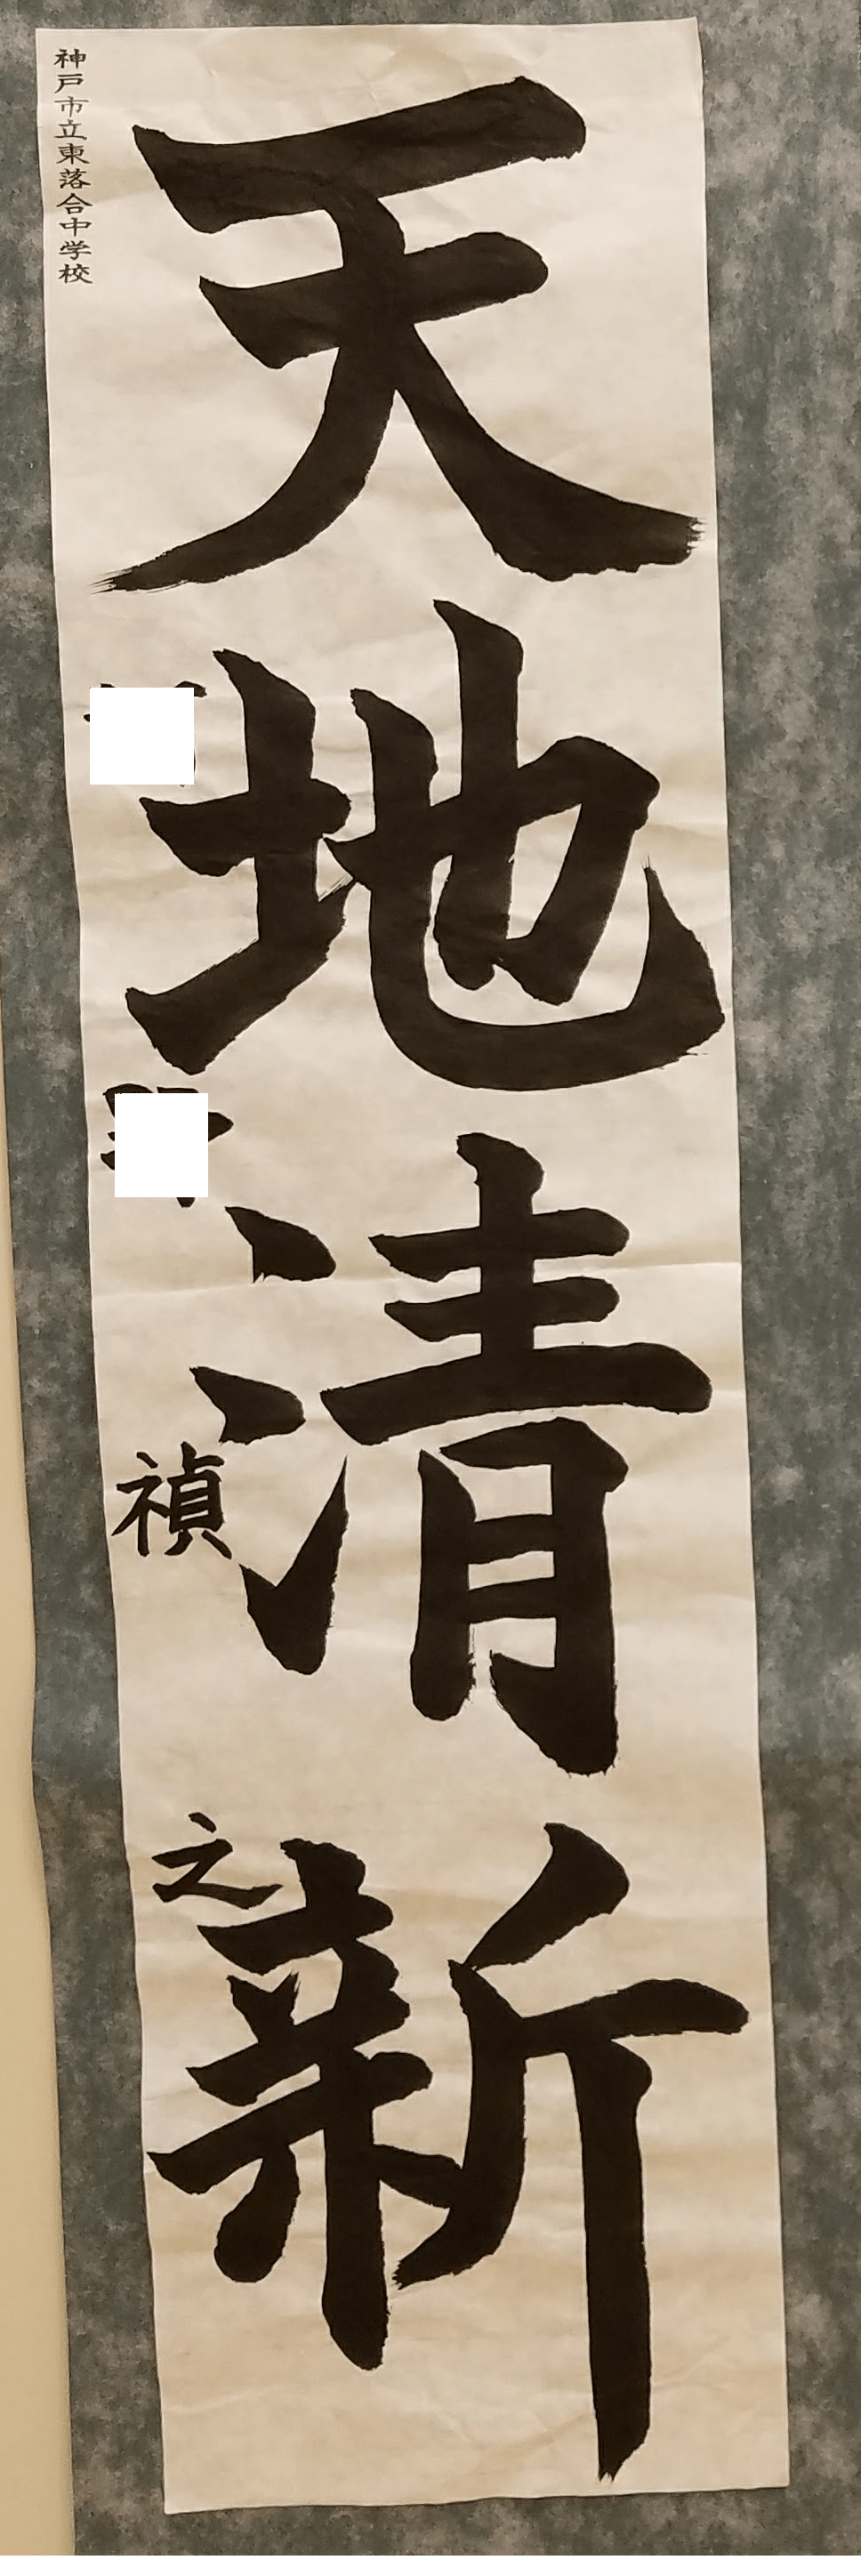 天地清新
神戸市立東落合中学校
禎之